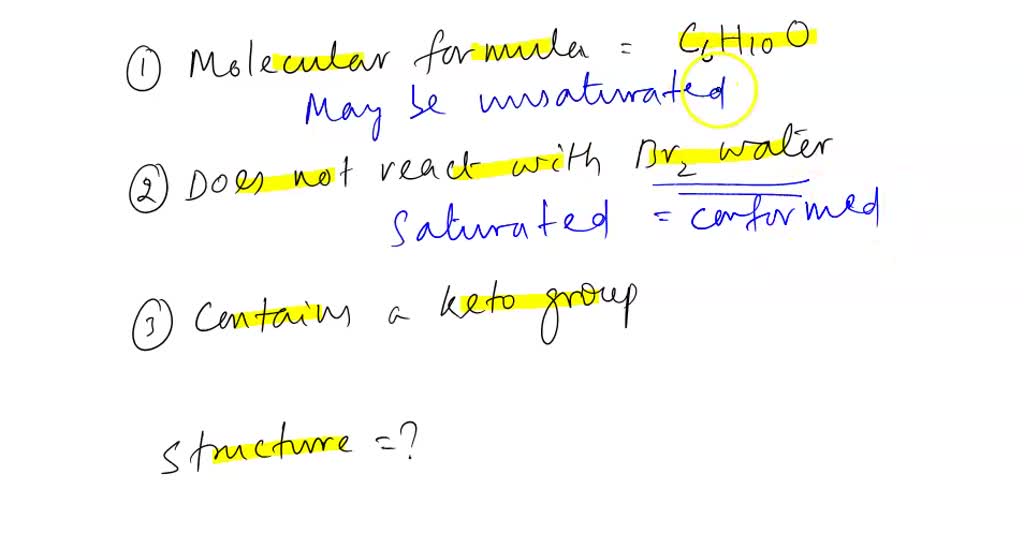 ① Molecular formula = C₆H₁₀O
May be unsaturated
② Does not react with Br₂ water
Saturated = conformed
③ Contains a keto group
structure = ?